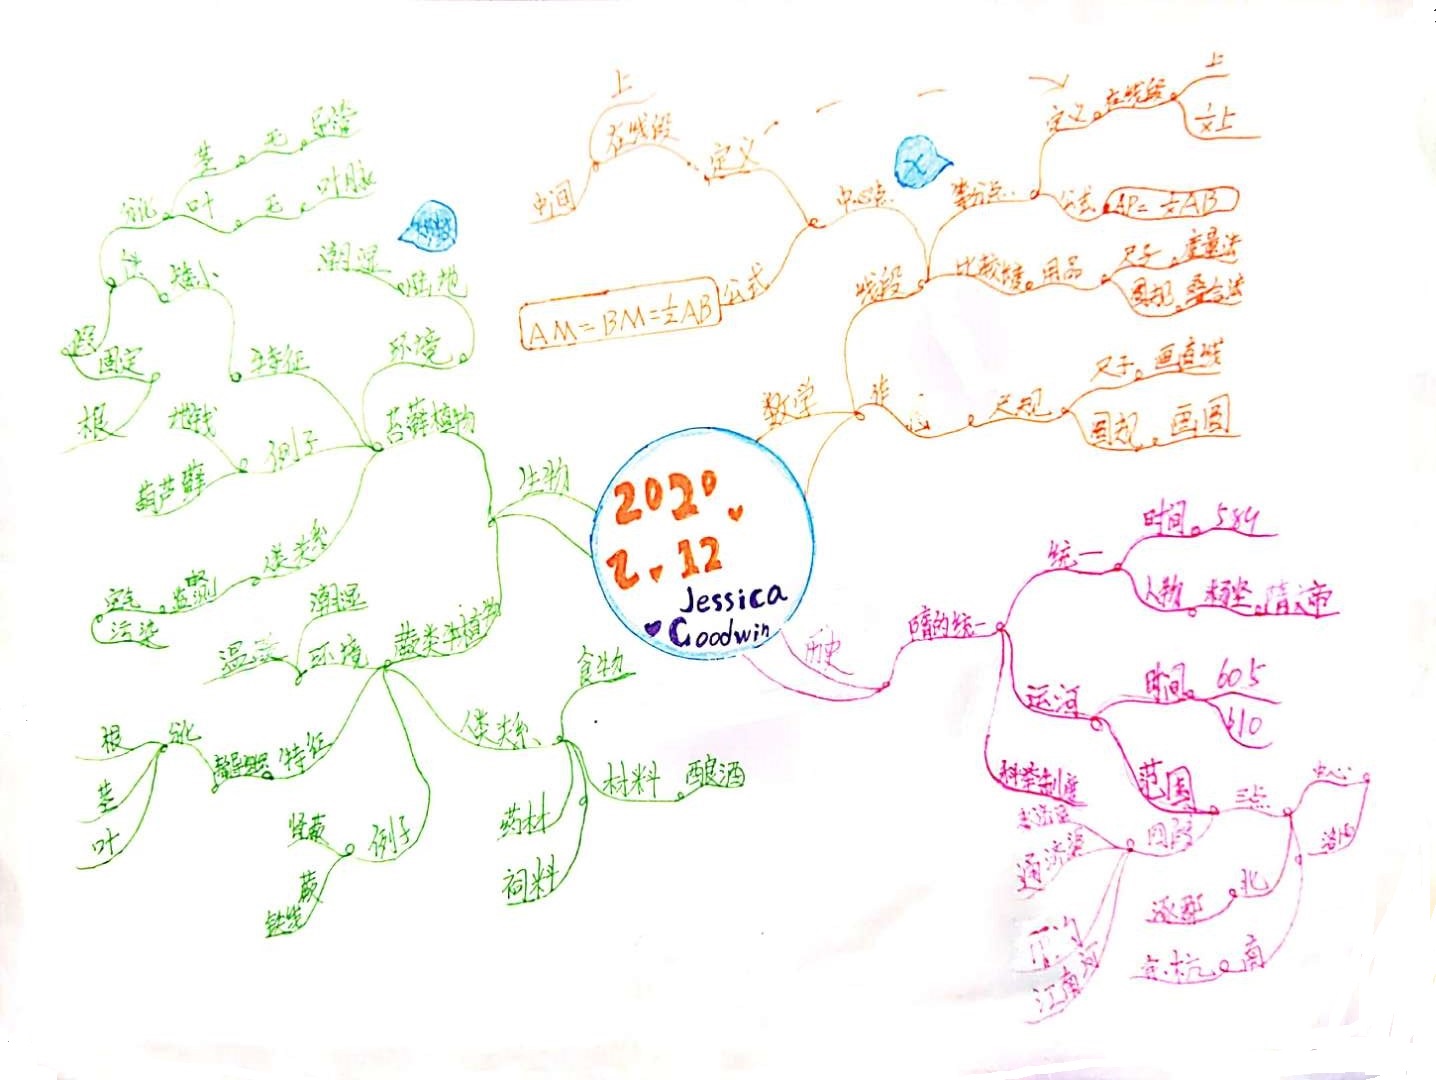 2020
2.12
Jessica
Goodwin
数学
线段
中心点
定义
在线段
上
中间
公式
AM=BM=½AB
定义
在线段
上
公式
比较
用品
尺子 度量法
圆规 叠合法
作
尺规
尺子 画直线
圆规 画圆
历史
隋的统一
统一
时间 589
人物 杨坚 隋文帝
运河
时间 605
610
范围
三点
洛阳
北
涿郡
南
通济渠
江南河
科举制度
生物
苔藓植物
环境
陆地
潮湿
特征
矮小
茎 无 导管
叶 无 叶脉
固定
根
例子
地钱
葫芦藓
人类关系
监测
空气
污染
蕨类植物
环境
潮湿
温暖
特征
根
茎
叶
例子
肾蕨
铁线
蕨
人类关系
食物
材料 酿酒
药材
饲料